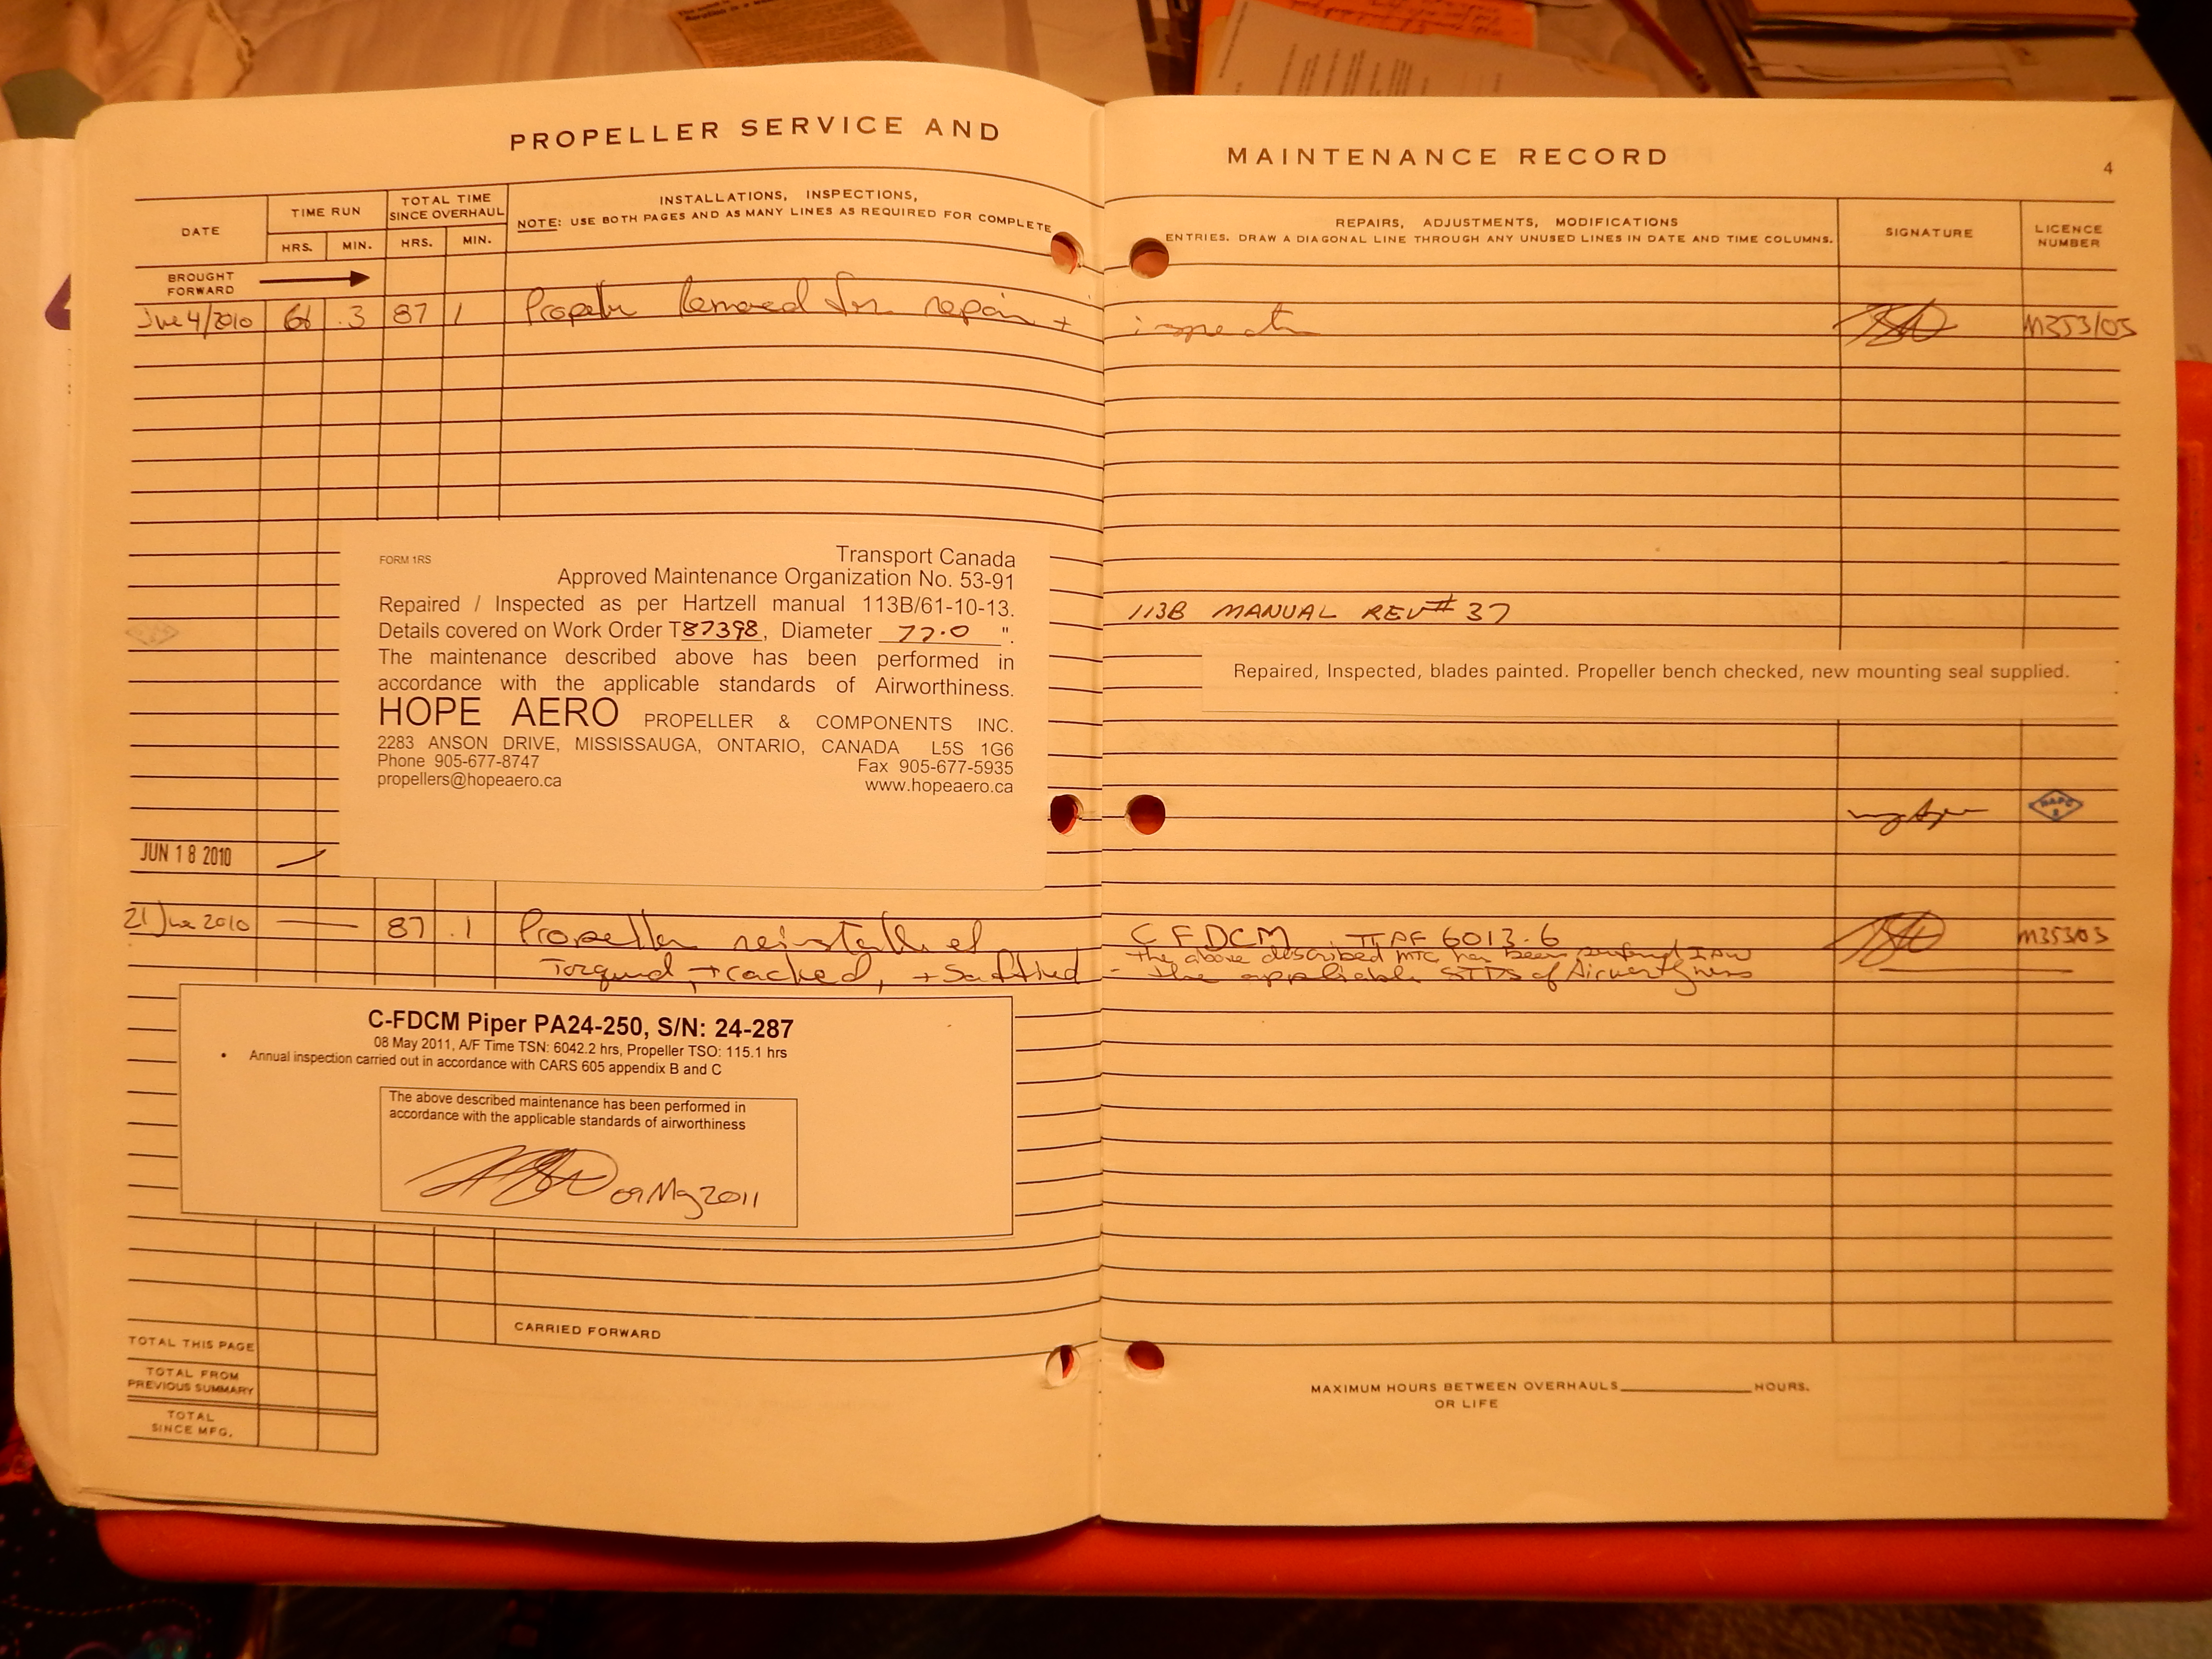 PROPELLER SERVICE AND
MAINTENANCE RECORD
4
DATE
TIME RUN
HRS. MIN.
TOTAL TIME
SINCE OVERHAUL
HRS. MIN.
INSTALLATIONS, INSPECTIONS,
NOTE: USE BOTH PAGES AND AS MANY LINES AS REQUIRED FOR COMPLETE
REPAIRS, ADJUSTMENTS, MODIFICATIONS
ENTRIES. DRAW A DIAGONAL LINE THROUGH ANY UNUSED LINES IN DATE AND TIME COLUMNS.
SIGNATURE
LICENCE
NUMBER
BROUGHT
FORWARD
June 4/2010 .3 87 1 Propeller Removed for repair + inspection M353103
FORM 1RS
Transport Canada
Approved Maintenance Organization No. 53-91
Repaired / Inspected as per Hartzell manual 113B/61-10-13.
113B MANUAL REV# 37
Details covered on Work Order T87398, Diameter 77.0 ".
The maintenance described above has been performed in
accordance with the applicable standards of Airworthiness.
Repaired, Inspected, blades painted. Propeller bench checked, new mounting seal supplied.
HOPE AERO PROPELLER & COMPONENTS INC.
2283 ANSON DRIVE, MISSISSAUGA, ONTARIO, CANADA L5S 1G6
Phone 905-677-8747 Fax 905-677-5935
propellers@hopeaero.ca www.hopeaero.ca
JUN 18 2010
21 June 2010 87 .1 Propeller reinstalled C FDCM TTAF 6013.6 M353103
Torqued, tracked, + Saftied - The above described MTC has been performed IAW
the applicable STDs of Airworthyness
C-FDCM Piper PA24-250, S/N: 24-287
08 May 2011, A/F Time TSN: 6042.2 hrs, Propeller TSO: 115.1 hrs
• Annual inspection carried out in accordance with CARS 605 appendix B and C
The above described maintenance has been performed in
accordance with the applicable standards of airworthiness
09 May 2011
CARRIED FORWARD
TOTAL THIS PAGE
TOTAL FROM
PREVIOUS SUMMARY
TOTAL
SINCE MFG.
MAXIMUM HOURS BETWEEN OVERHAULS____________HOURS.
OR LIFE